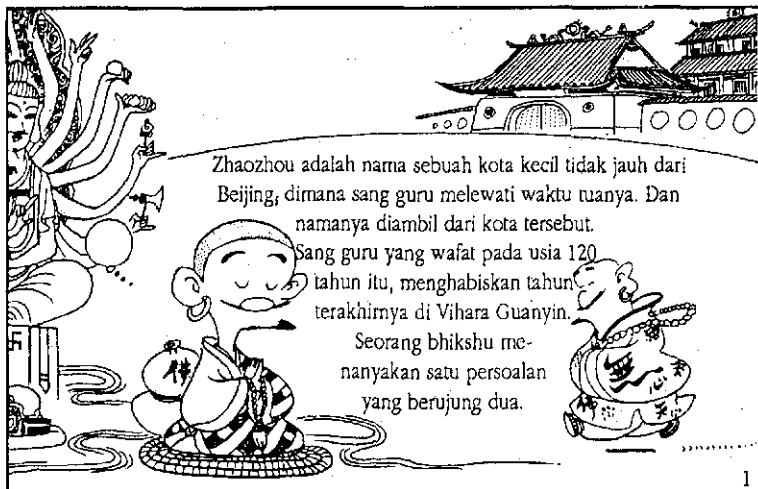 Zhaozhou adalah nama sebuah kota kecil tidak jauh dari
Beijing, dimana sang guru melewati waktu tuanya. Dan
namanya diambil dari kota tersebut.
Sang guru yang wafat pada usia 120
tahun itu, menghabiskan tahun
terakhirnya di Vihara Guanyin.
Seorang bhikshu me-
nanyakan satu persoalan
yang berujung dua.
佛
1